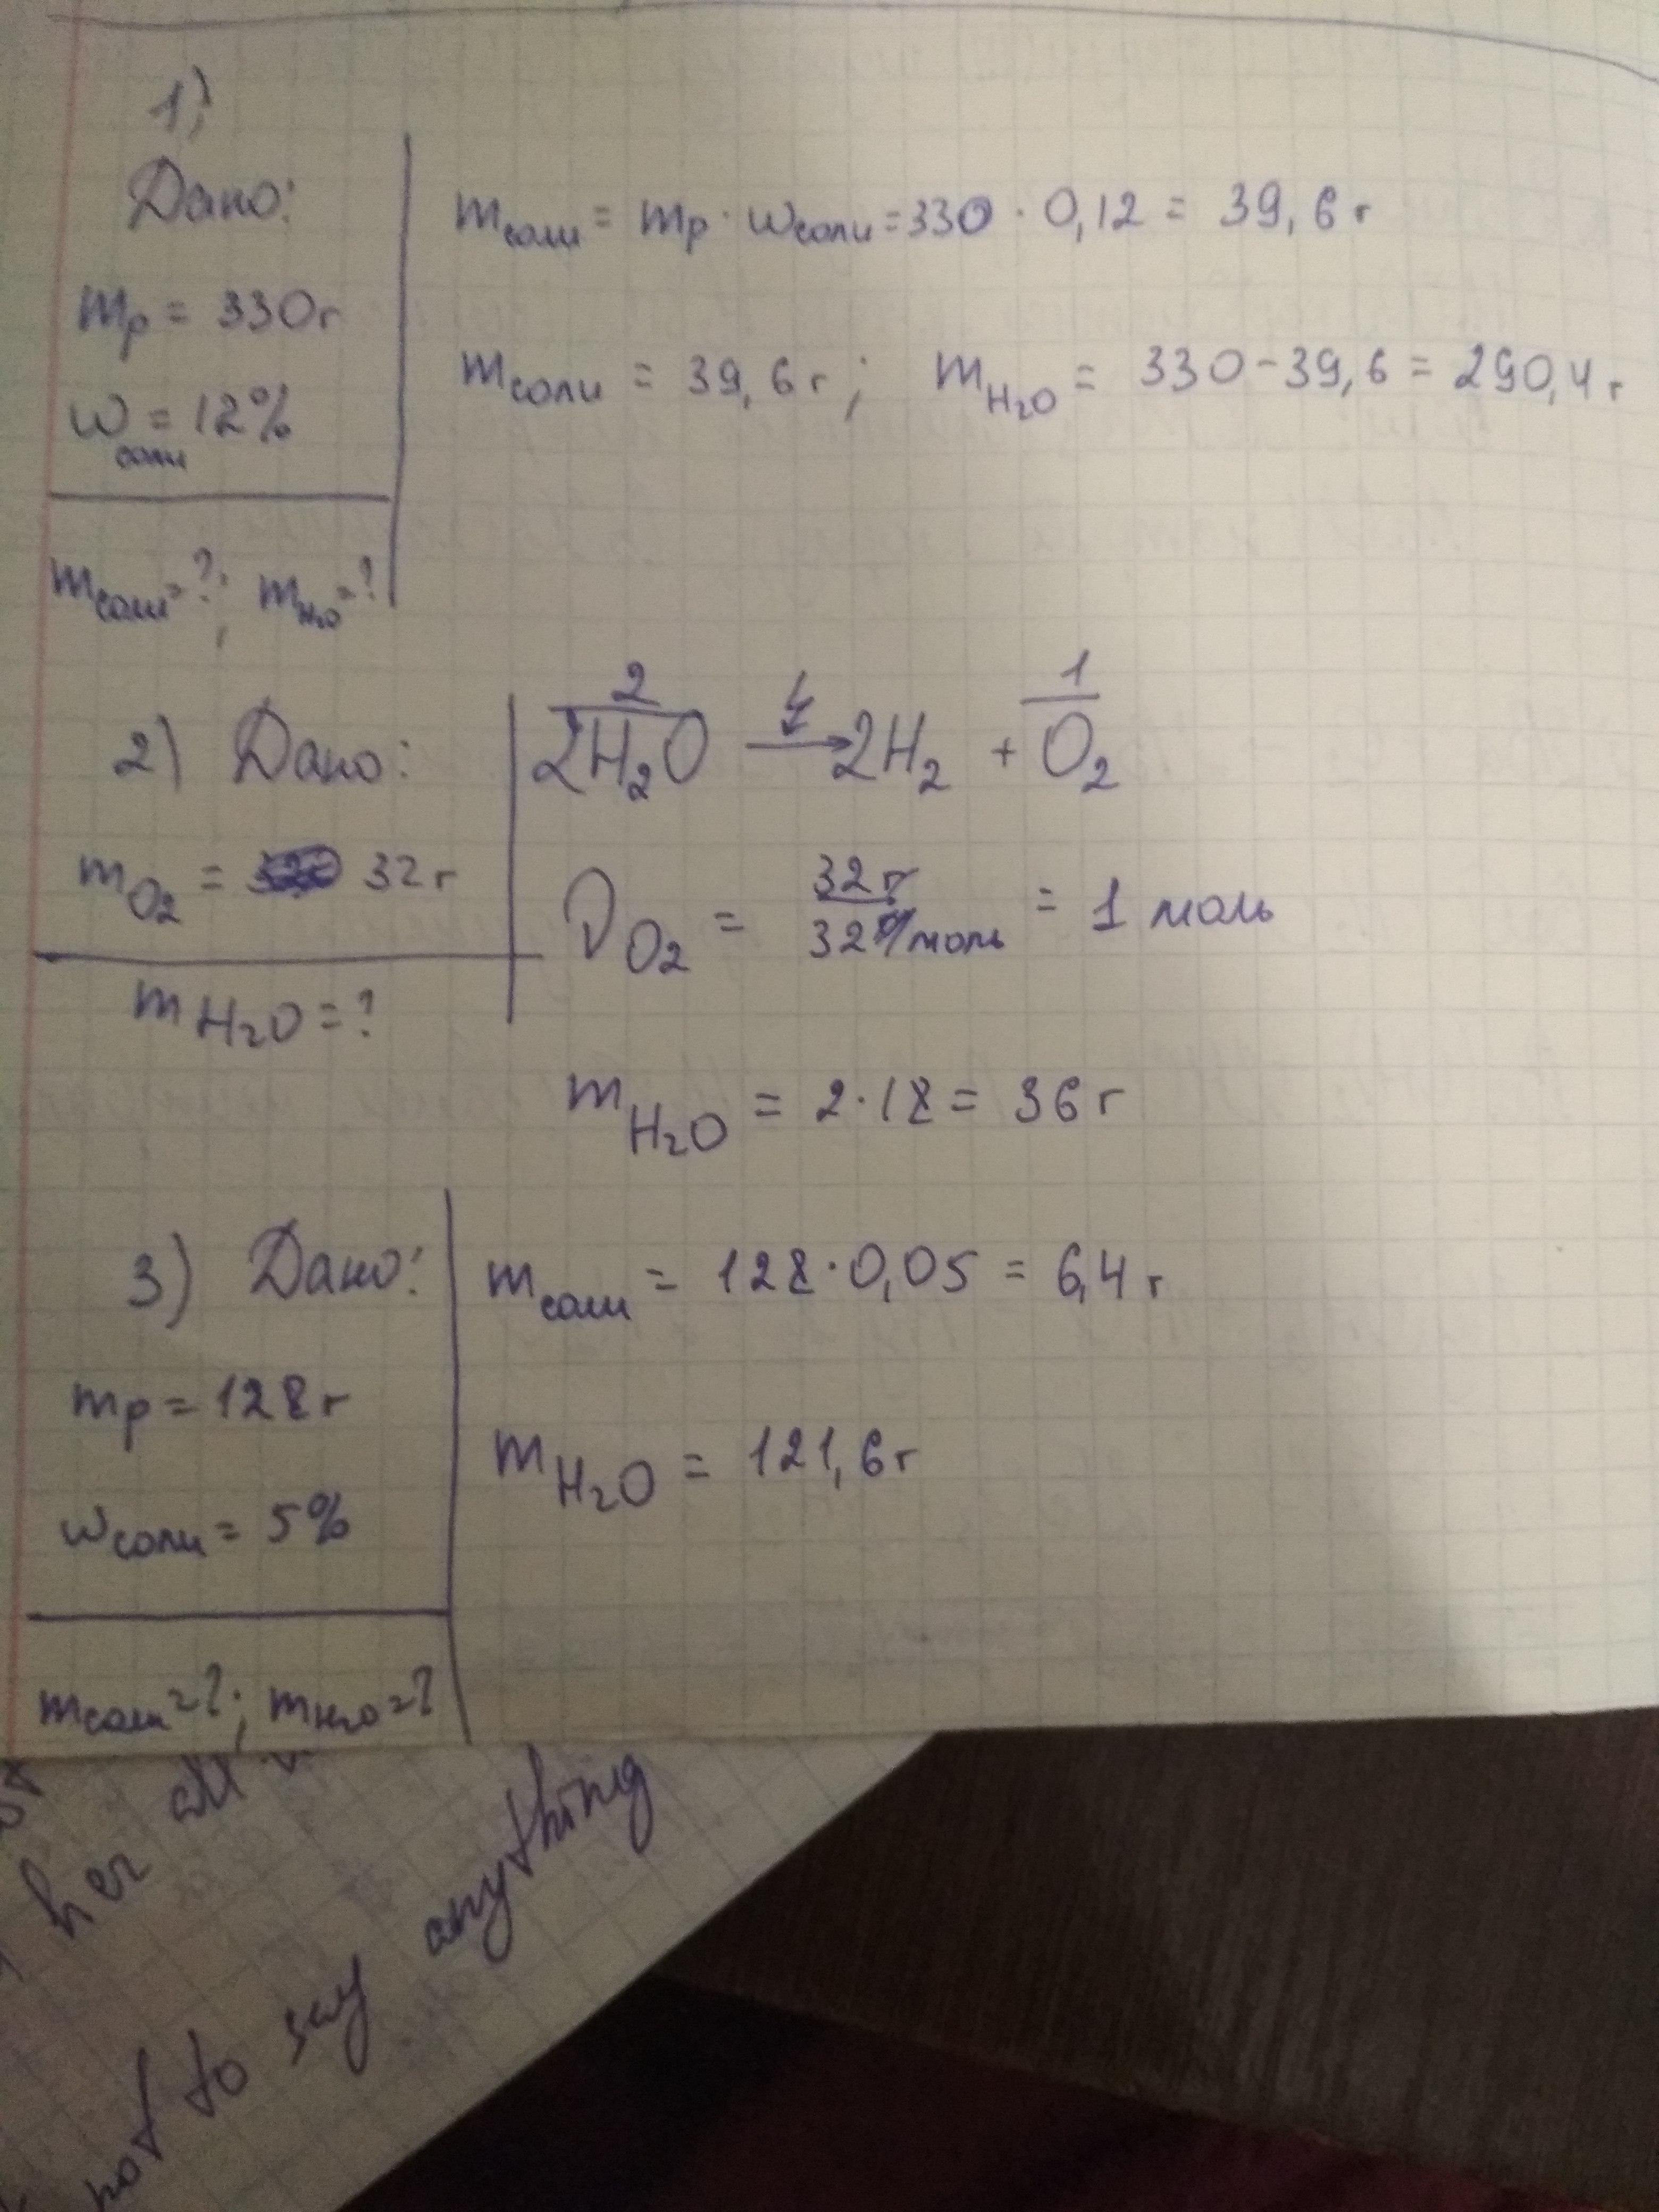 1)
Дано:
mр = 330г
wсоли = 12%
mсоли = ?; mH₂O = ?
mсоли = mр · wсоли = 330 · 0,12 = 39,6 г
mсоли = 39,6 г; mH₂O = 330 - 39,6 = 290,4 г
2) Дано:
mO₂ = 32 г
mH₂O = ?
2 1
2H₂O → 2H₂ + O₂
νO₂ = 32 г / 32 г/моль = 1 моль
mH₂O = 2 · 18 = 36 г
3) Дано:
mр = 128 г
wсоли = 5%
mсоли = ?; mH₂O = ?
mсоли = 128 · 0,05 = 6,4 г
mH₂O = 121,6 г
her all
not to say anything